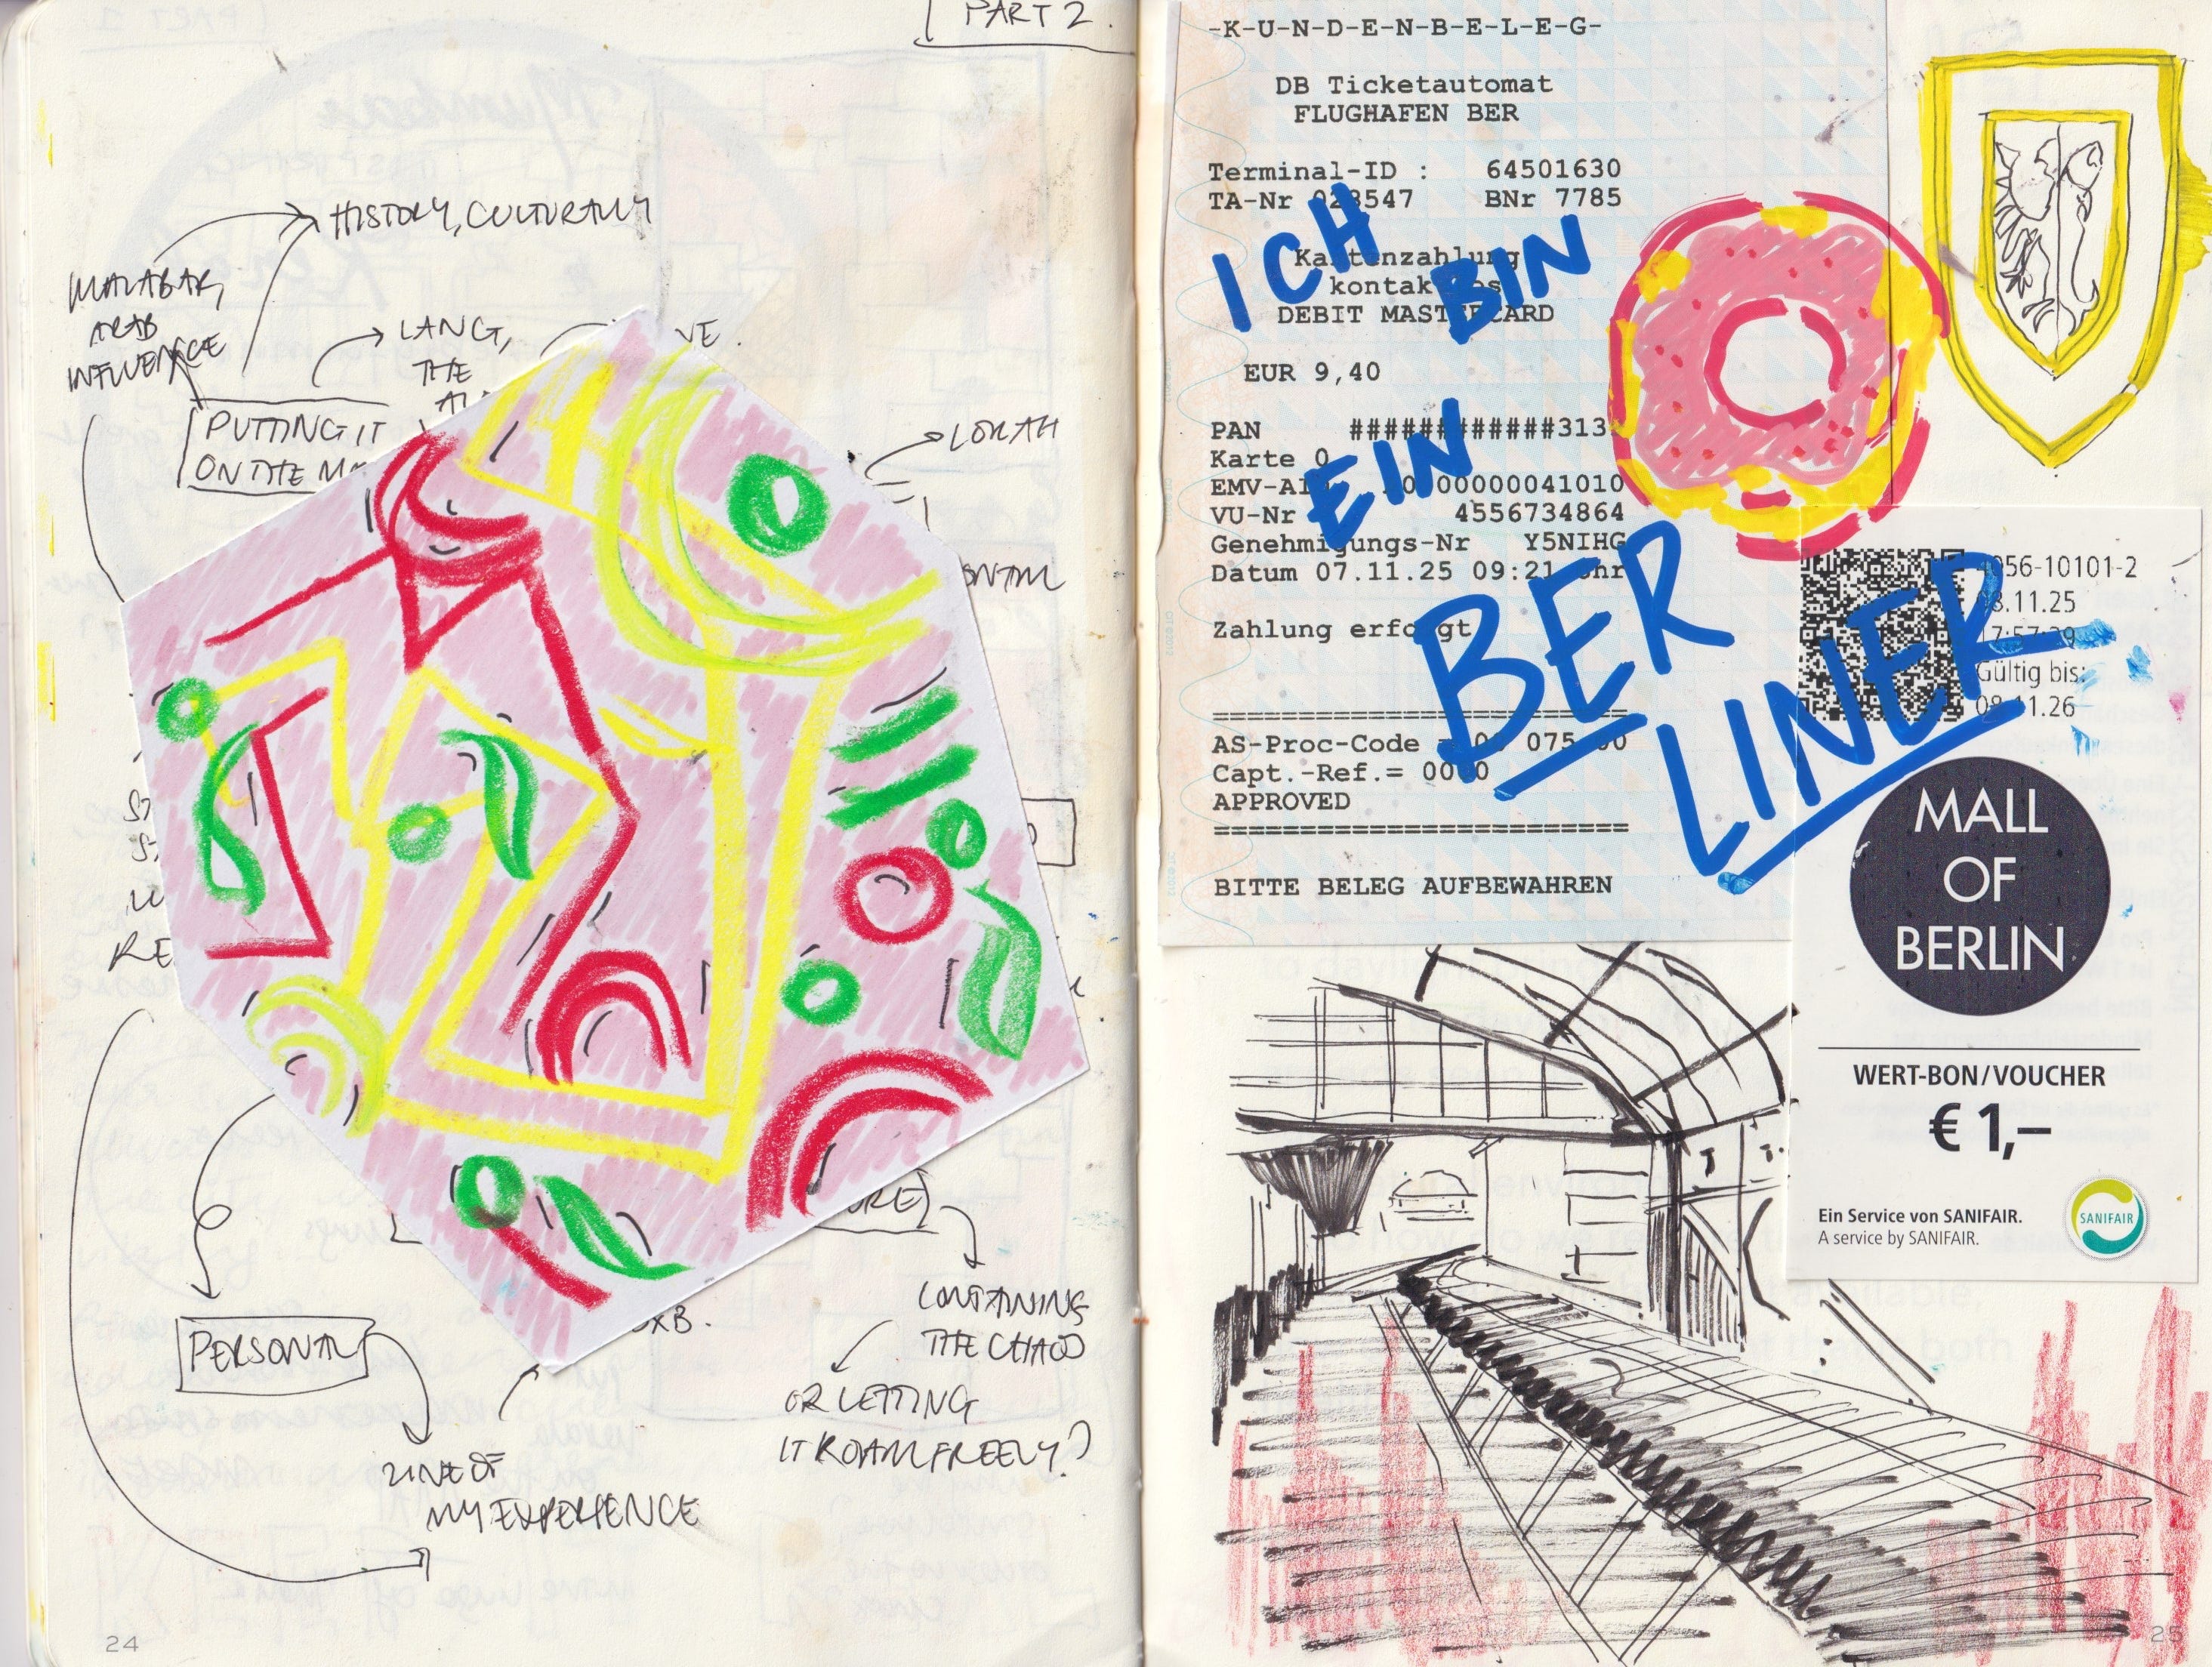 PART 2.
HISTORY, CULTURALLY
MALABAR,
ARAB
INFLUENCE
LANG,
THE
VE.
PUTTING IT
ON THE
PERSONAL
LINE OF
MY EXPERIENCE
CONTAINING
THE CHAOS
OR LETTING
IT ROAM FREELY?
24
-K-U-N-D-E-N-B-E-L-E-G-
DB Ticketautomat
FLUGHAFEN BER
Terminal-ID : 64501630
TA-Nr 023547 BNr 7785
Kartenzahlung
kontaktlos
DEBIT MASTERCARD
EUR 9,40
PAN ############313
Karte 0
EMV-AID 00000041010
VU-Nr 4556734864
Genehmigungs-Nr Y5NIHG
Datum 07.11.25 09:21 Uhr
Zahlung erfolgt
AS-Proc-Code = 00 075 00
Capt.-Ref.= 0000
APPROVED
BITTE BELEG AUFBEWAHREN
ICH
BIN
EIN
BER
LINER
4056-10101-2
08.11.25
17:57:39
Gültig bis:
08.11.26
MALL
OF
BERLIN
WERT-BON/VOUCHER
€ 1,–
Ein Service von SANIFAIR.
A service by SANIFAIR.
SANIFAIR
25